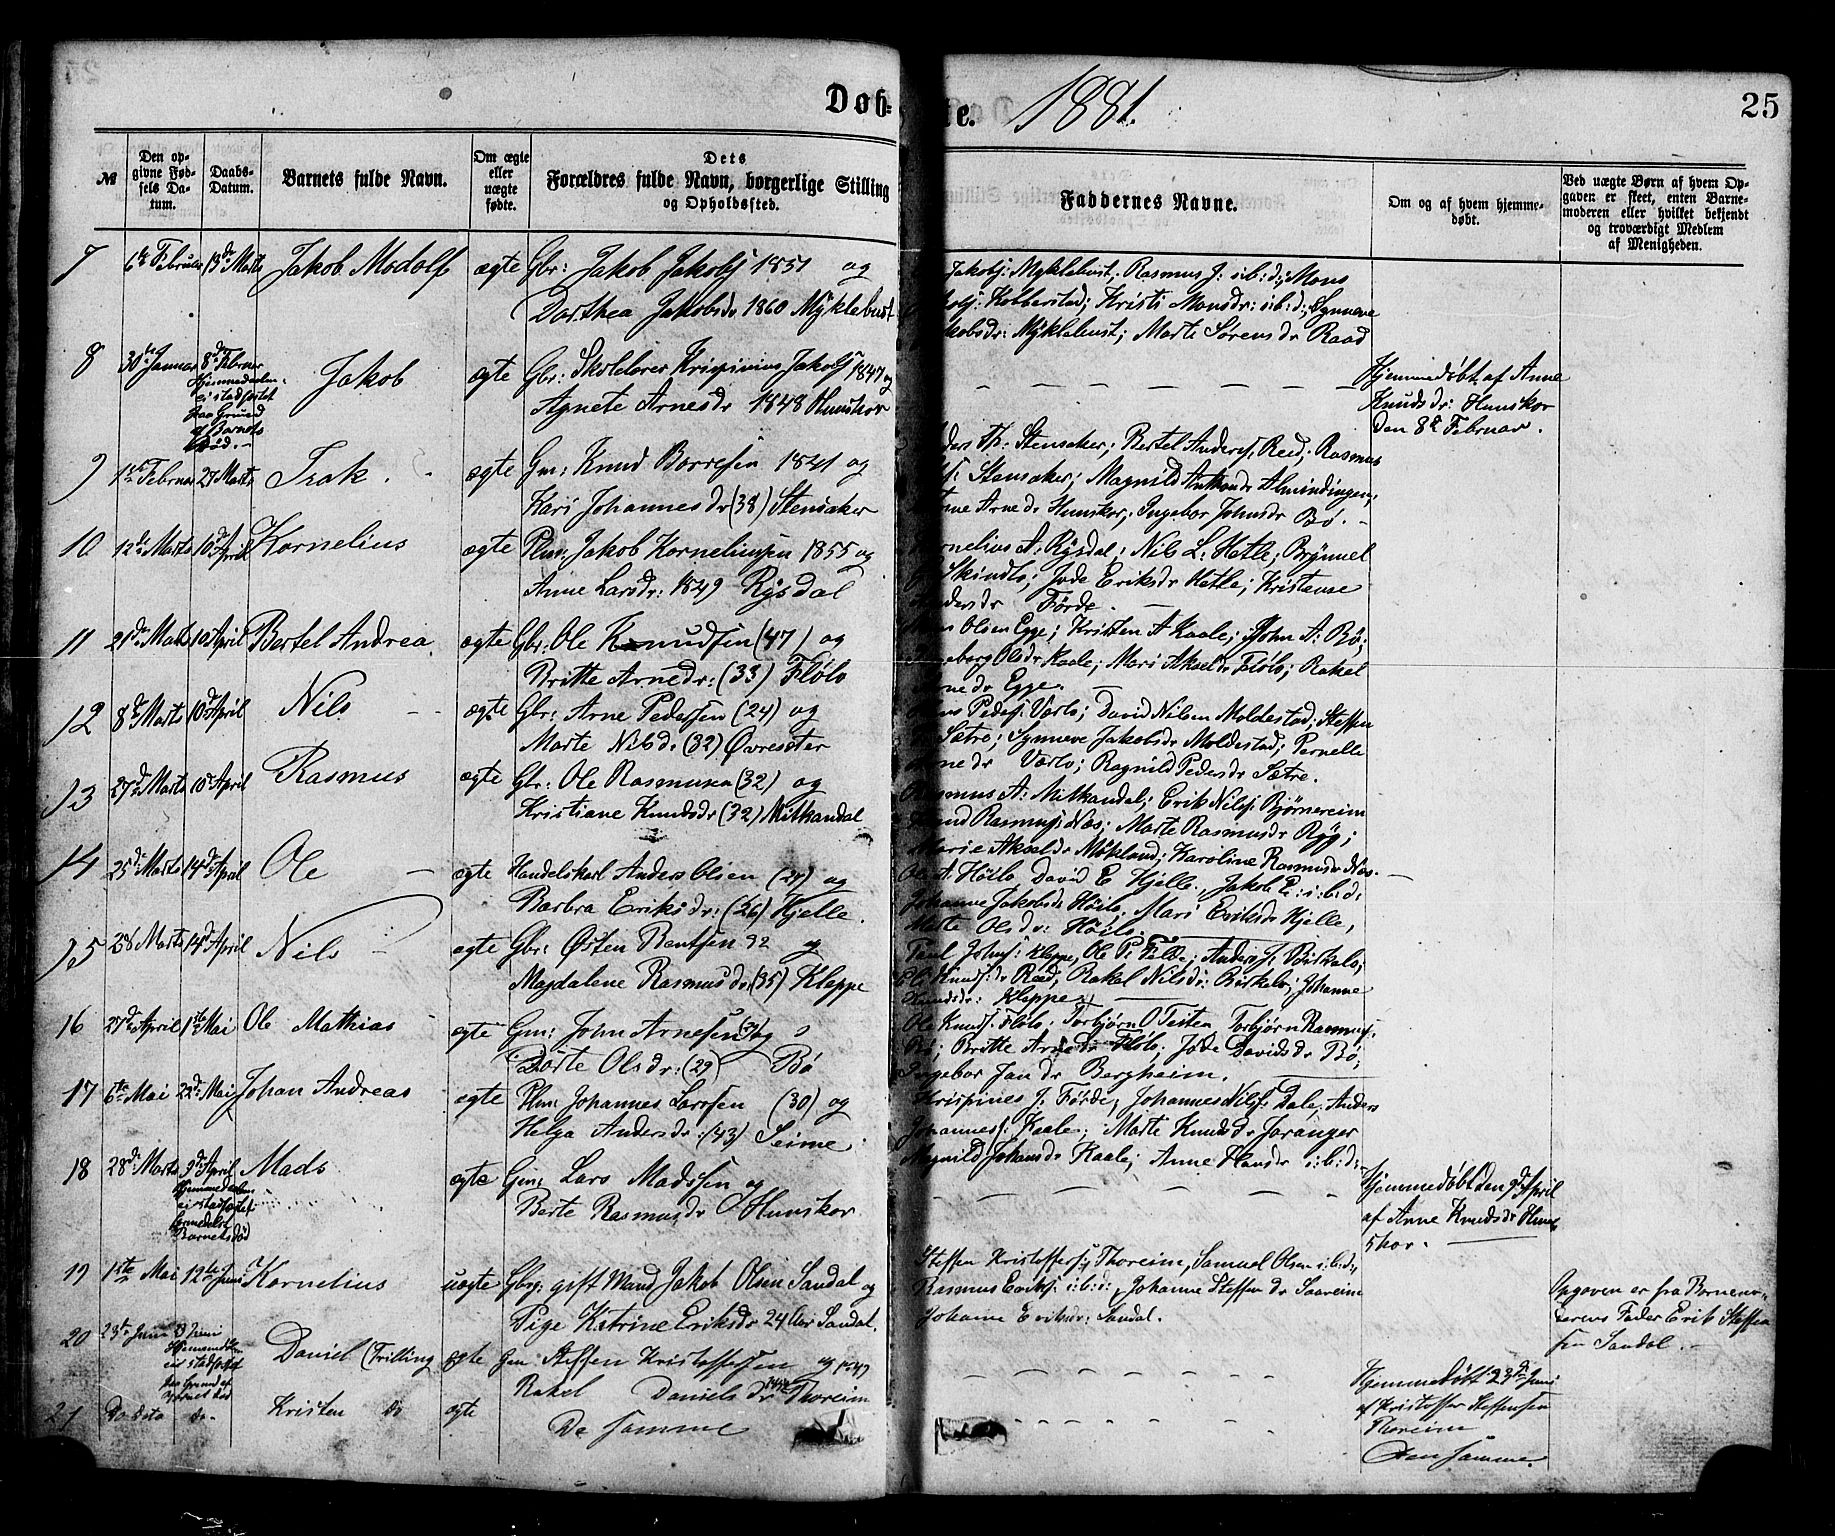 Døb- te. 1881. 25
№
Den op-
givne Fød-
sels Da-
tum.
Daabs-
Datum.
Barnets fulde Navn.
Om ægte
eller
uægte
fødte.
Dets
Forældres fulde Navn, borgerlige Stilling
og Opholdssted.
Faddernes Navne.
Om og af hvem hjemme-
døbt.
Ved uægte Børn af hvem Op-
gaven er skeet, enten Barne-
moderen eller hvilket bekjendt
og troværdigt Medlem
af Menigheden.
7 6te Februar 13de Marts Jakob Modolf ægte Gbr: Jakob Jakobs 1851 og
Dorthea Jakobsdr 1860 Myklebust
Jakobs: Myklebust; Rasmus J: i:b:d:; Mons
Kobberstad; Kristi Monsdr: i:b:d:; Synneve
Jakobsdr: Myklebust; Marte Sørensdr Raad
8 30te Januar 8de Februar Jakob ægte Gbr: Skolelærer Krispinius Jakobs 1847 og
Hjemmedaaben
ei stadfæstet
paa Grund
af Barnets
Død. -
Agnete Arnesdr 1848 Hunskor
Hjemmedøbt af Anne
Knudsdr: Hunskor
den 8de Februar.
9 1ste Februar 27 Marts Isak. ægte Gm: Knud Børresen 1841 og
Kari Johannesdr (38) Stensaker
Th: Stensaker; Bertel Anders. Reed; Rasmus
Stensaker; Magnild Anthondr Almindingen;
Anne Arnedr Hunskor; Ingebor Johnsdr Bö. -
10 12te Marts 10de April Kornelius ægte Plm: Jakob Korneliusen 1855 og
Anne Larsdr: 1849 Rysdal
Kornelius A. Rysdal; Nils L. Hetle; Brynnel
Skindlo; Jode Eriksdr Hetle; Kristense
Andersdr Förde. -
11 21de Marts 10 April Bertel Andrea. ægte Gbr: Ole Knudsen (47) og
Britte Arnedr: (33) Flölo
Olsen Egge; Kristen A Kaale; John A: Bö;
Ingeborg Olsdr Kaale; Mari Akseldr Flölo; Rakel
Arnedr Egge.
12 8de Marts 10de April Nils ægte Gbr: Arne Pedersen (24) og
Marte Nilsdr (32) Øvreseter
Peders: Værlo; David Nilsen Moldestad; Steffen
Sætre; Synneve Jakobsdr Moldestad; Pernelle
Arnedr Værlo; Ragnild Pedersdr Sætre.
13 27de Marts 10de April Rasmus ægte Gbr: Ole Rasmusen (32) og
Kristiane Knudsdr (32) Mitkandal
Rasmus A: Mitkandal; Erik Nils. Bjørnereim
Knud Rasmus. Næs; Marte Rasmusdr Ryg;
Marie Akseldr Mökland; Karoline Rasmusdr Næs.
14 25de Marts 14de April Ole ægte Handelskarl Anders Olsen (27) og
Barbra Eriksdr: (26) Hjelle.
Ole A Höilo David E Hjelle., Jakob E: i:b:d:
Johanne Jakobsdr Höilo, Mari Eriksdr Hjelle,
Marte Olsdr: Höilo.
15 26 Marts 14de April Nils ægte Gbr: Østen Bentsen 32 og
Magdalene Rasmusdr (35) Kleppe
Paul Johns: Kleppe, Ole P. Felde; Anders J. Birkelo,
Eli Knudsdr Reed, Rakel Nilsdr: Birkelo; Johanne
Knudsdr: Kleppe
16 27de April 1ste Mai Ole Mathias ægte Gm: John Arnesen (31) og
Dorte Olsdr: (29) Bö
Ole Knuds. Flölo; Torbjørn O Teiten Torbjørn Rasmus.
Bö; Britte Arnedr Flölo; Jode Davidsdr Bö;
Ingebor Jandr Bergheim.
17 6te Mai 22de Mai Johan Andreas ægte Plm: Johannes Larssen (30) og
Helga Andersdr: (43) Seime
Krispines J. Förde, Johannes Nils. Dale, Anders
Johannes. Kaale; Marte Knudsdr Soranger
Magnild Johansdr Kaale; Anne Hansdr i:b:d:
18 28de Marts 9de April Mads ægte Gm: Lars Madssen og
Hjemmedaaben
ei stadfæstet
formedelst
Barnets död
Berte Rasmusdr Hunskor
Hjemmedøbt den 9de April
af Anne Knudsdr Hun-
skor.
19 1ste Mai 12te Juni Kornelius uægte Gbr: gift Mand Jakob Olsen Sandal og
Pige Katrine Eriksdr 24 Aar Sandal.
Steffen Kristoffers. Thoreim, Samuel Olsen i:b:d:,
Rasmus Eriks: i:b:d:, Johanne Steffendr Saareim
Johanne Eriksdr: Sandal.
Opgaven er fra Barnemo-
derens Fader Erik Steffen
sen Sandal.
20 23de Juni Juni Daniel (Trilling ægte Gm Steffen Kristoffersen og 1849
Hjemmedaaben
ei stadfæstet
paa Grund af
Barnets Död
Rakel Danielsdr Thoreim
Hjemmedøbt 23de Juni
af Kristoffer Steffensen
Thoreim
21 Do Dito do. Kristen do ægte De samme
Den samme.